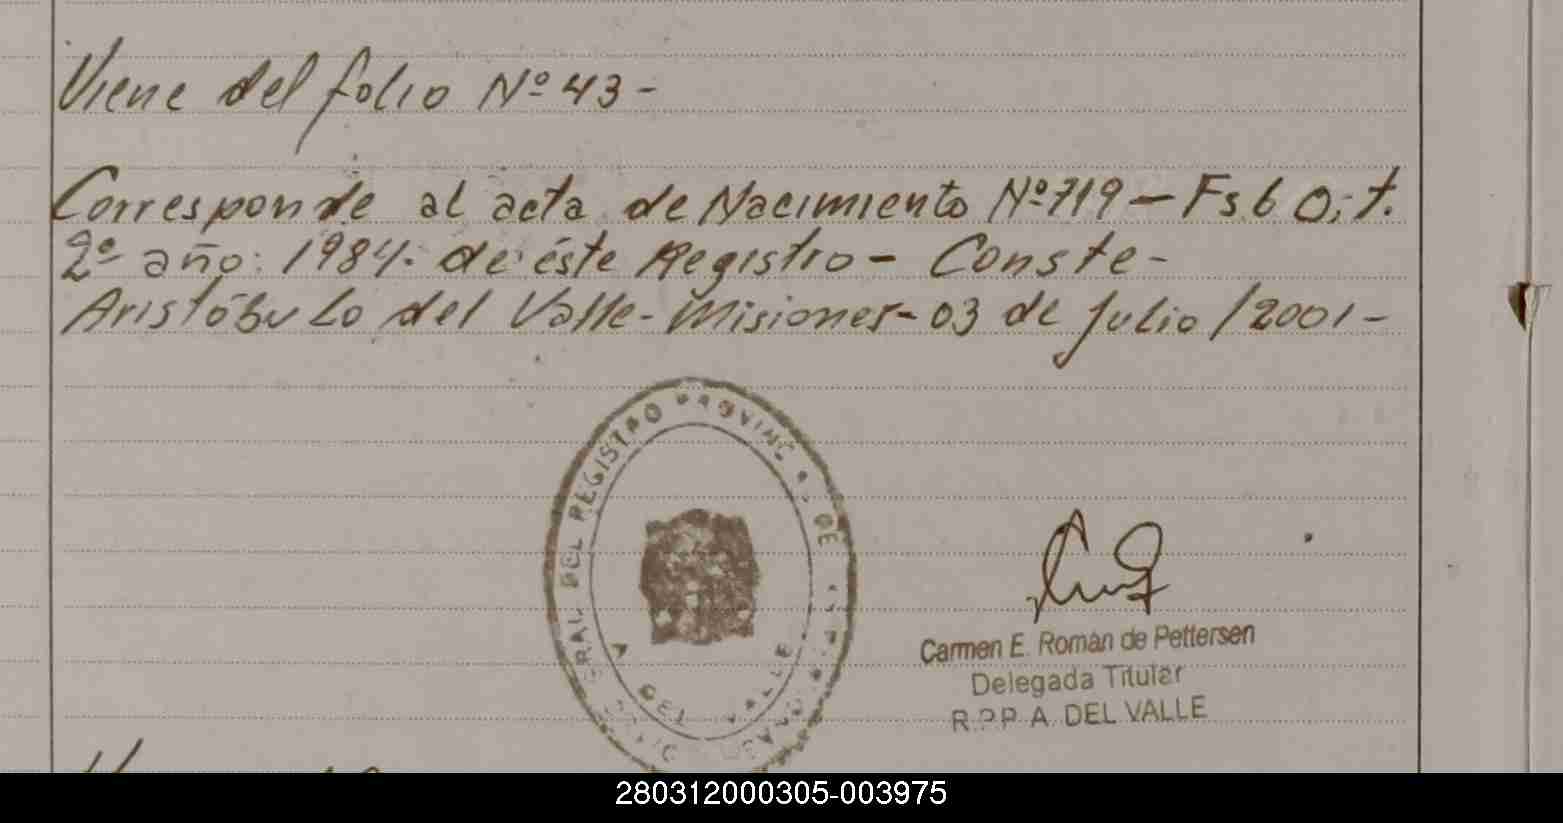 Viene del folio Nº 43-
Corresponde al acta de Nacimiento Nº 719 - Fs. 60, t.
2º año: 1984. de éste Registro - Conste -
Aristóbulo del Valle - Misiones - 03 de julio / 2001 -
DEL REGISTRO
DE
A DEL VALLE
Carmen E. Román de Pettersen
Delegada Titular
R.P.P. A. DEL VALLE
280312000305-003975